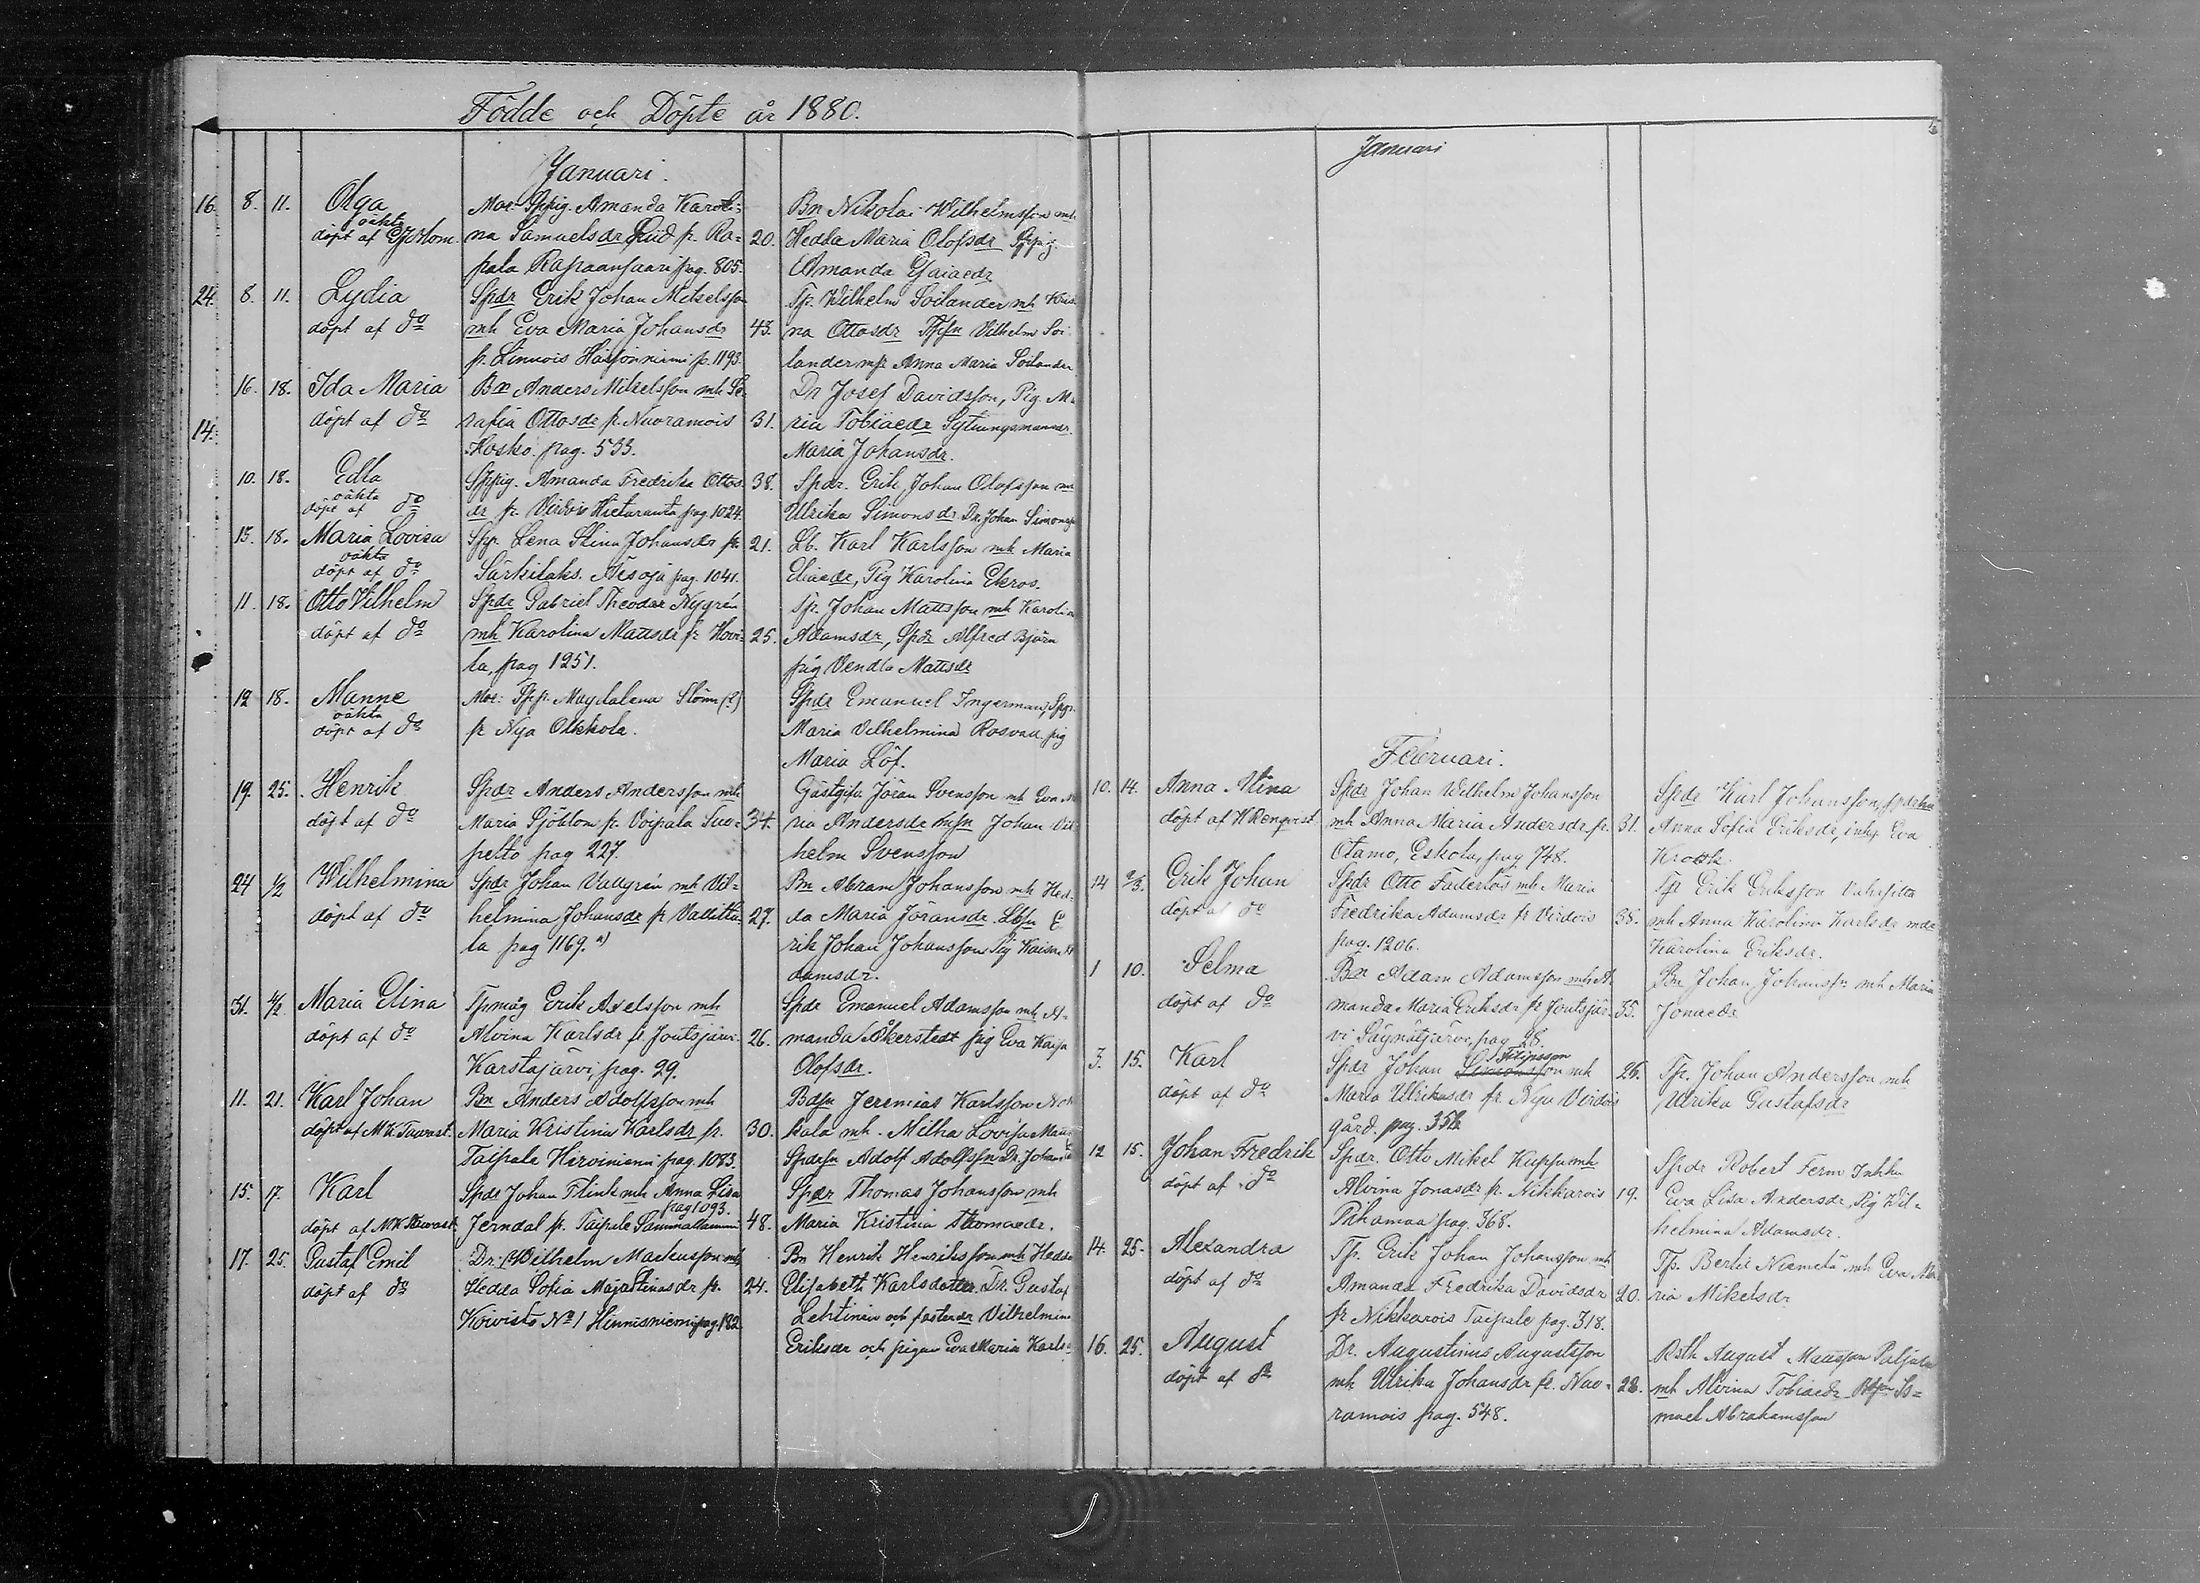 Födde och Döpte år 1880.
Januari.
16. 8. 11. Olga Mor: Sppig. Amanda Karoli= Bn Nikolai Wilhelmsson mh
oäkta
döpt af na Samuelsdr fr. Ra= 20. Hedda Maria Olofsdr Sppig
pala Rapaansaari pag. 805. Amanda Esaiaedr
24. 8. 11. Lydia Spdr Erik Johan Mikelsson Tp. Wilhelm Soilander mh Kris
döpt af do mh Eva Maria Johansdr 43. na Ottosdr Vilhelm Soi
fr. Linnois p. 1193. lander Anna Maria Soilander
16. 18. Ida Maria Bn Anders Mikelsson mh Se Dr Josef Davidsson, Pig. Ma
14. döpt af do rafia Ottosdr fr. Nuoramois 31. ria Tobiaedr Sytningsmansdr.
Hosko. pag. 533. Maria Johansdr.
10. 18. Edla Sppig. Amanda Fredrika Ottos 38. Spdr. Erik Johan Olofsson mh
oäkta
döpt af do dr fr. Virdois Hietaranta pag 1024. Ulrika Simonsdr Dr. Johan Simonss
15. 18. Maria Lovisa Spp. Lena Stina Johansdr fr. 21. Lb. Karl Karlsson mh Maria
oäkta
döpt af do Särkilaks. pag. 1041. Eliaedr, Pig Karolina Ekros.
11. 18. Otto Vilhelm Spdr Gabriel Theodor Nygrén Tp. Johan Mattsson mh Karolin
döpt af do mh Karolina Mattsdr fr. Hovi= 25. Adamsdr, Spdr Alfred Björn
la, pag 1251. pig Vendla Mattsdr
12 18. Manne Mor: Spp. Magdalena Ström (?) Spdr Emanuel Ingerman, Spp.
oäkta
döpt af do fr Nya Olkkola. Maria Vilhelmina Rosvad. pig
Maria Löf.
19. 25. Henrik Spdr Anders Andersson mh Gästgifv Jöran Svensson mh Eva Ma
döpt af do Maria Sjöblom fr. Voipala Suo= 34. ria Andersdr Johan Vil
pelto pag 227. helm Svensson
24 1/2 Wilhelmina Spdr Johan Vallgrén mh Vil= Bn Abram Johansson mh Hed
döpt af do helmina Johansdr fr Vallitta 27. da Maria Jöransdr. E
la pag 1169. a) rik Johan Johansson Pig Kaisa A
damsdr.
31. 4/2 Maria Elina Tpmåg Erik Axelsson mh Spdr Emanuel Adamsson mh A=
döpt af do Alvina Karlsdr fr Joutsjärvi 26. manda Åkerstedt pig Eva Kaisa
Karstajärvi, pag. 99. Olofsdr.
11. 21. Karl Johan Bn Anders Adolfsson mh Jeremias Karlsson
döpt af M K Tawast. Maria Kristina Karlsdr fr. 30. kala mh. Milka Lovisa
Taipale Hirviniemi pag. 1083. Adolf Adolfssn Dr. Johan
15. 17. Karl Spdr Johan Flink mh Anna Lisa Spdr Thomas Johansson mh
pag 1093.
döpt af M K Tawast. Jerndal fr. Taipale 48. Maria Kristina Thomaedr.
17. 25. Gustaf Emil Dr. Wilhelm Markusson mh Bn Henrik Henriksson mh Hedda
döpt af do Hedda Sofia Maja Stinasdr fr. 24. Elisabeth Karlsdotter. Dr. Gustaf
Koivisto No 1 Hinnisniemi pag 182 Lehtinen och Vilhelmina
Eriksdr och pigan Eva Maria Karlsdr
Januari
Februari.
10. 14. Anna Stina Spdr Johan Wilhelm Johansson Spdr Karl Johansson,
döpt af W Renqvist. mh Anna Maria Andersdr fr. 31. Anna Sofia Eriksdr, inhp Eva
Otamo, Eskola, pag 748.
14 2/3. Erik Johan Spdr Otto mh Maria Tp Erik Eriksson
döpt af do Fredrika Adamsdr fr Virdois 38. mh Anna Karolina Karlsdr
pag. 1206. Karolina Eriksdr.
1 10. Selma Bn Adam Adamsson mh A= Bn Johan Johansson mh Maria
döpt af do manda Maria Eriksdr fr Joutsjär= 35. Jonaedr
vi Säynätjärvi, pag 28.
Filipsson
3. 15. Karl Spdr Johan mh 26. Tp. Johan Andersson mh
döpt af do Maria Ulrikasdr fr. Nya Virdois Ulrika Gustafsdr
gård. pag.
12 15. Johan Fredrik Spdr. Otto Mikel mh Spdr Robert Ferm Inhhu
döpt af do Alvina Jonasdr fr. Nikkarois 19. Eva Lisa Andersdr, Pig Wil=
Pihamaa pag. 368. helmina Adamsdr.
14. 25. Alexandra Tp. Erik Johan Johansson mh Tp. Bertil Niemelä mh Eva Ma
döpt af do Amanda Fredrika Davidsdr 20. ria Mikelsdr
fr Nikkarois Taipale pag. 318.
16. 25. August Dr. Augustinus Augustsson August Mattsson
döpt af do mh Ulrika Johansdr fr. Nuo= 28. mh Alvina Tobiaedr Is=
ramois pag. 548. mael Abrahamsson